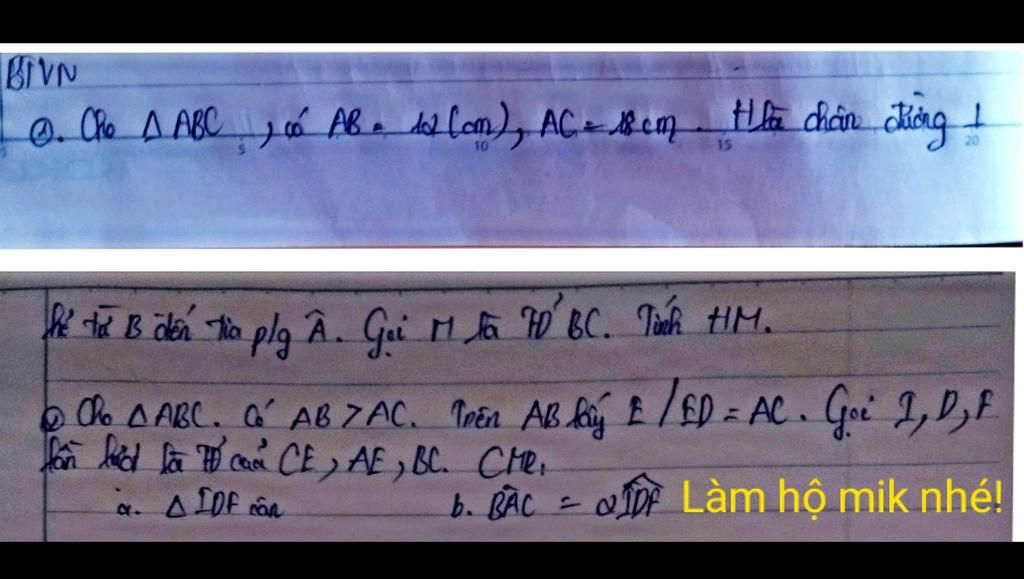 BTVN
①. Cho Δ ABC , có AB = 12 (cm), AC = 18 cm. H là chân đường ⊥
5 10 15 20
kẻ từ B đến tia p/g Â. Gọi M là TĐ BC. Tính HM.
② Cho Δ ABC. Có AB > AC. Trên AB lấy E / ED = AC. Gọi I, D, F
lần lượt là TĐ của CE, AE, BC. CMR:
a. Δ IDF cân b. BÂC = 2IDF Làm hộ mik nhé!